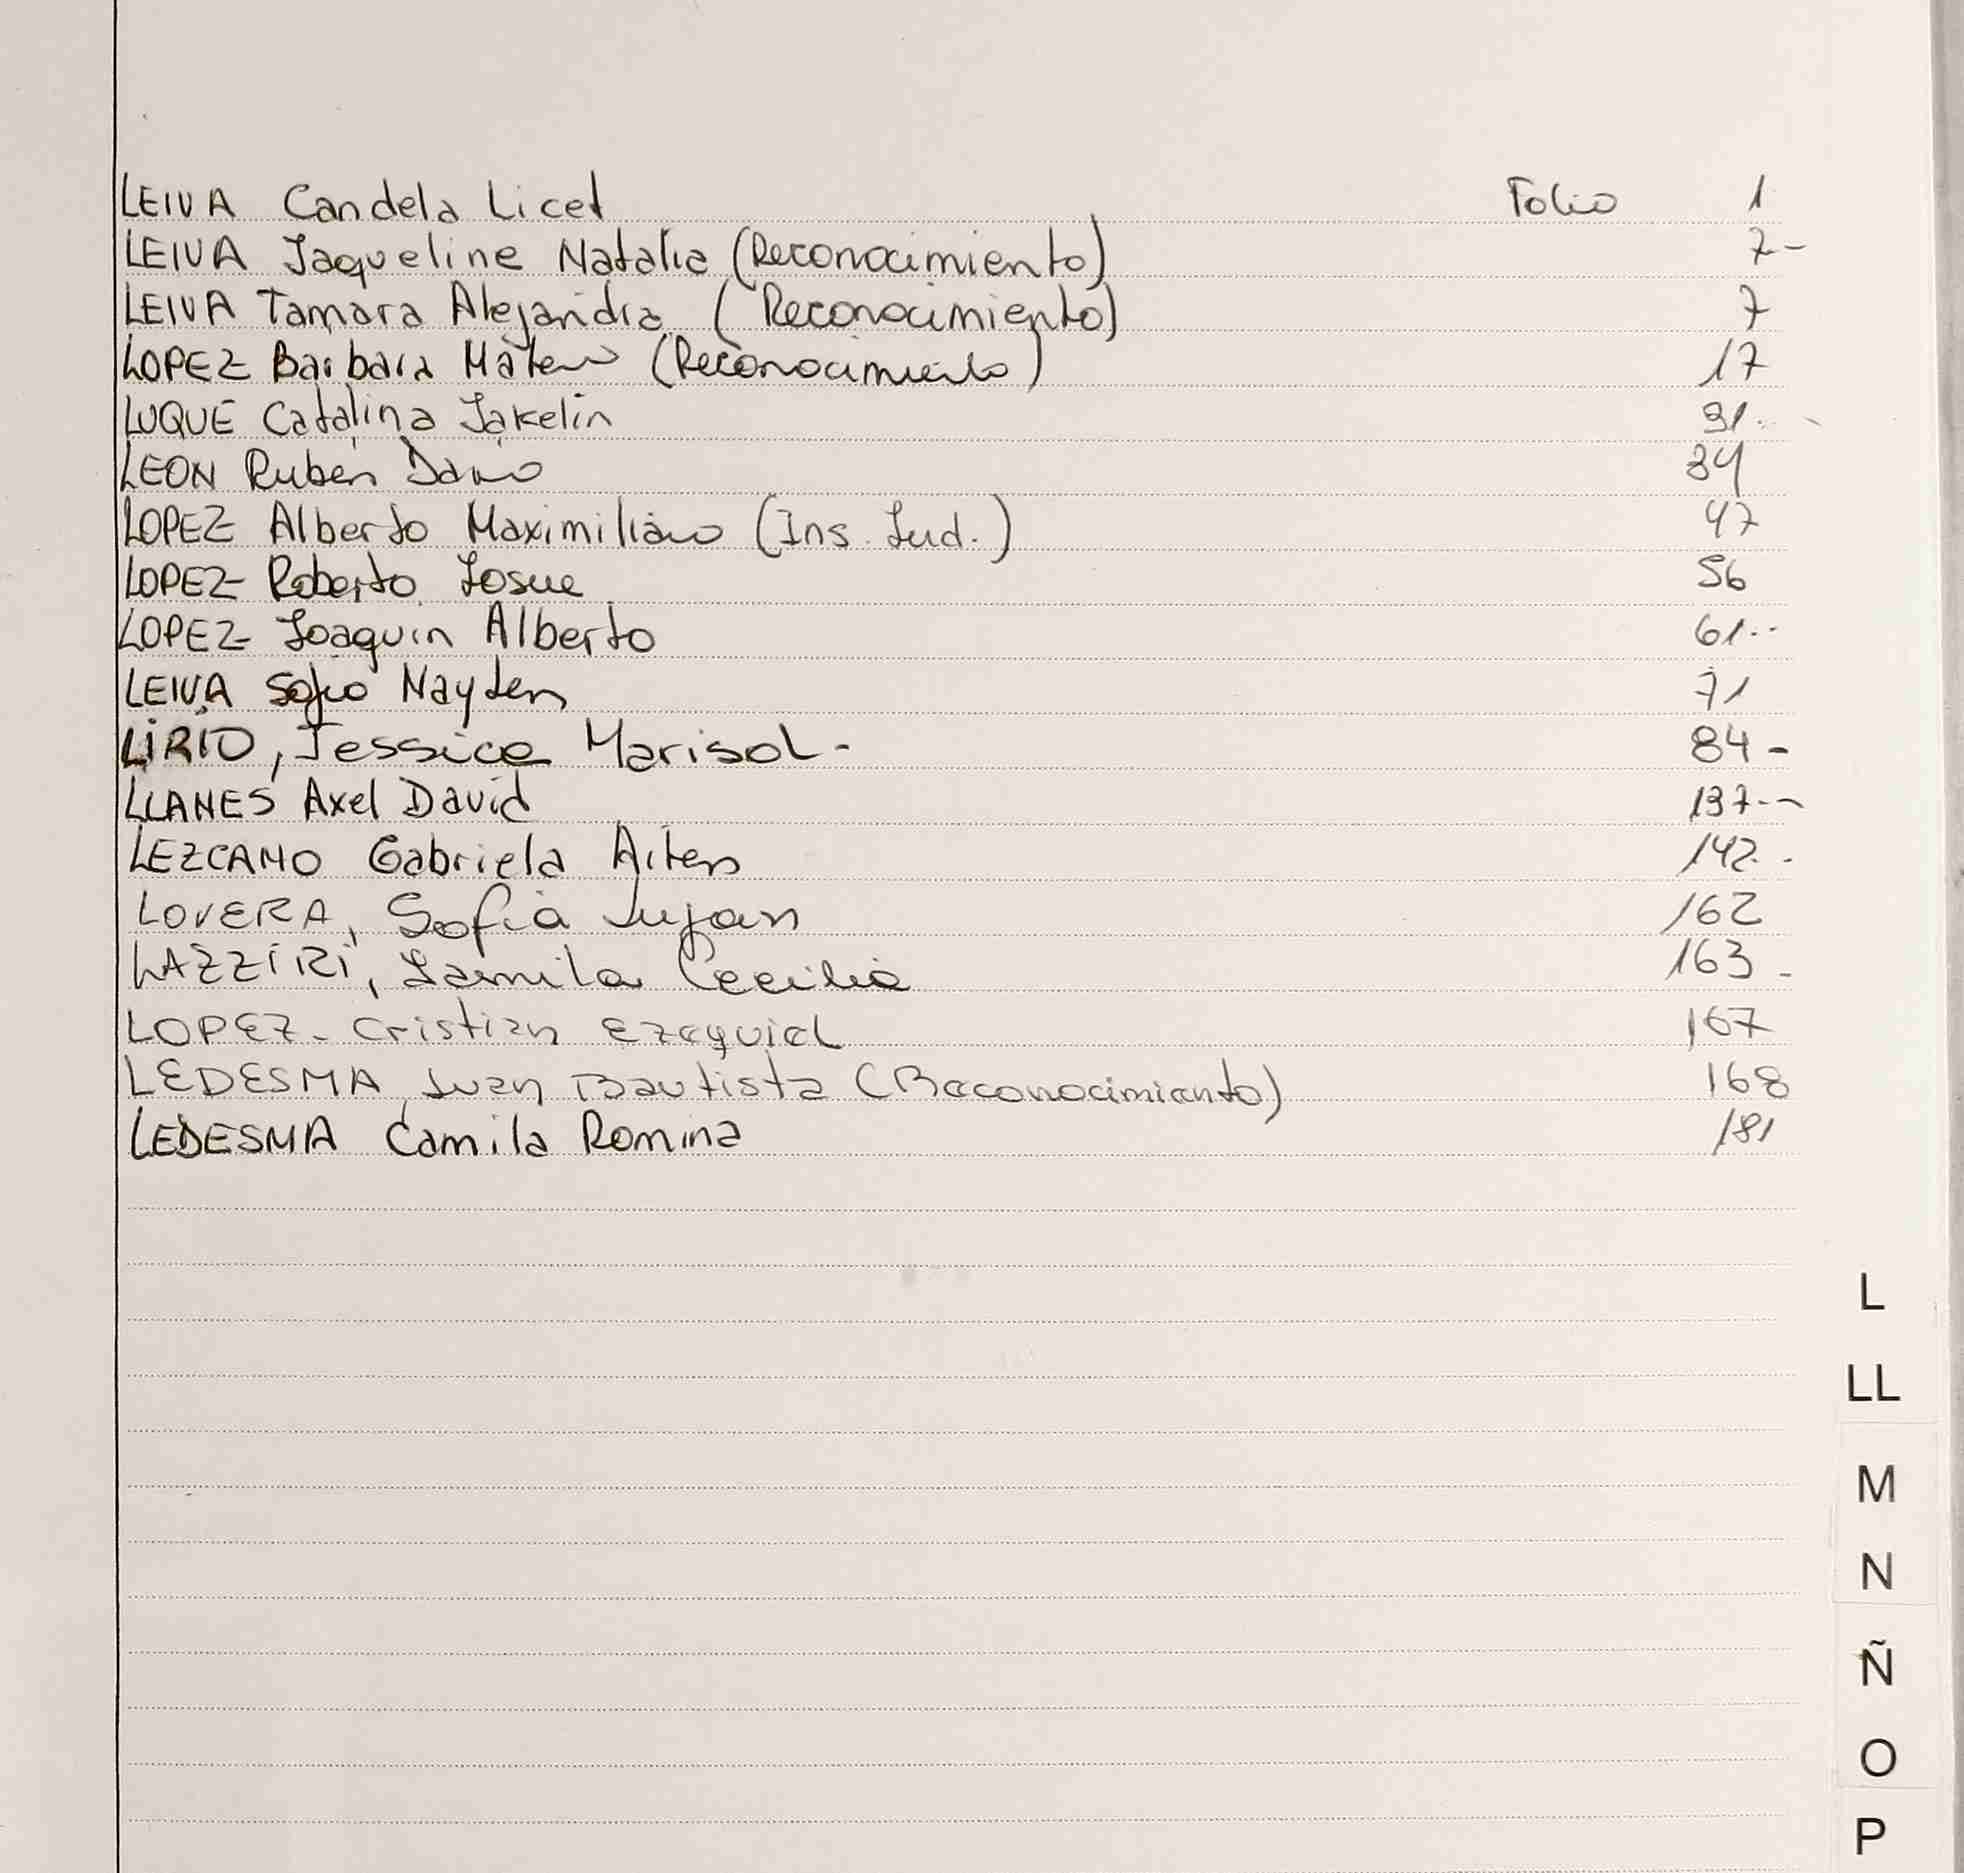 LEIVA Candela Licet Folio 1
LEIVA Jaqueline Natalia (Reconocimiento) 7-
LEIVA Tamara Alejandra (Reconocimiento) 7
LOPEZ Barbara (Reconocimiento) 17
LUQUE Catalina Jakelin 31..
LEON Ruben Dario 34
LOPEZ Alberto Maximiliano (Ins. Jud.) 47
LOPEZ Roberto Josue 56
LOPEZ Joaquin Alberto 61..
LEIVA Sofia Naylen 71
LIRIO, Jessica Marisol - 84 -
LLANES Axel David 137--
LEZCANO Gabriela Ailen 142. .
LOVERA, Sofia Lujan 162
LAZZIRI, Jamila Cecilia 163 -
LOPEZ- Cristian Ezequiel 167
LEDESMA, Juan Bautista (Reconocimiento) 168
LEDESMA Camila Romina 181
L
LL
M
N
Ñ
O
P